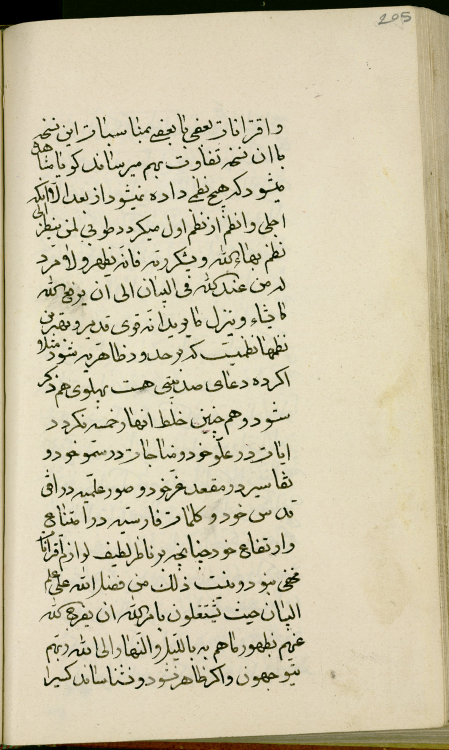 205
و اقترانات بعضی با بعضی بمناسبات این نسخه
با ان نسخه تفاوت بهم میرساند کویا مشاهده
میشود که هیچ نظمی داده نمیشود از بعد الا انکه
اجلی و انظم از نظم اول میکردد طوبی لمن ینظر الی
نظم بهاء الله و یشکر ربه فانه یظهر و لا مرد
له من عند الله فی البیان الی ان یرفع الله
ما یشاء و ینزل ما یرید انه قوی قدیر و بهترین
نظمها نظمیست که بر حدود ظاهریه شود مثلا
اکر ده دعای صد بیتی هست پهلوی هم ذکر
شود و هم چنین خلط انهار خمسه نکردد
ایات در علو خود و مناجات در سمو خود و
تفاسیر در مقعد عز خود و صور علمیه در افق
قدس خود و کلمات فارسیه در امتناع
و ارتفاع خود چنانچه بر ناظر لطیف لوازم اقترانات
مخفی نبوده و نیست ذلک من فضل الله علی اهل
البیان حیث یشتغلون بامر الله ان یفرج الله
عنهم بظهور ما هم به باللیل و النهار الی الله ربهم
یتوجهون و اکر ظاهر شود و نشناساند کسی را